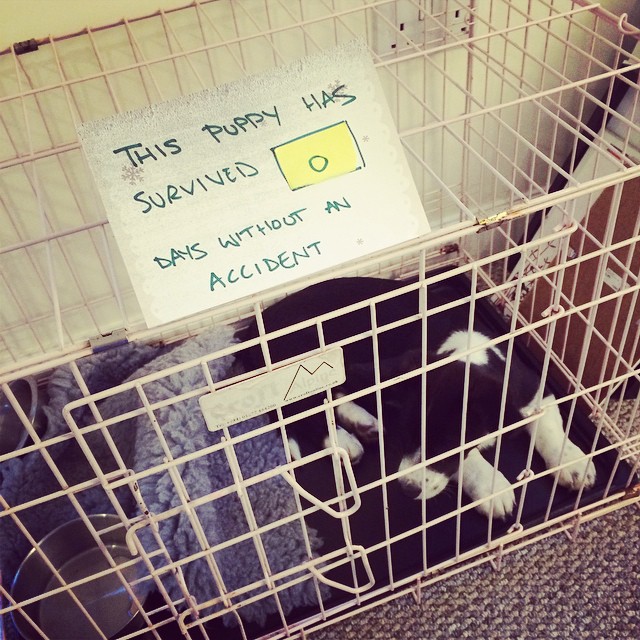 THIS PUPPY HAS
SURVIVED 0
DAYS WITHOUT AN
ACCIDENT